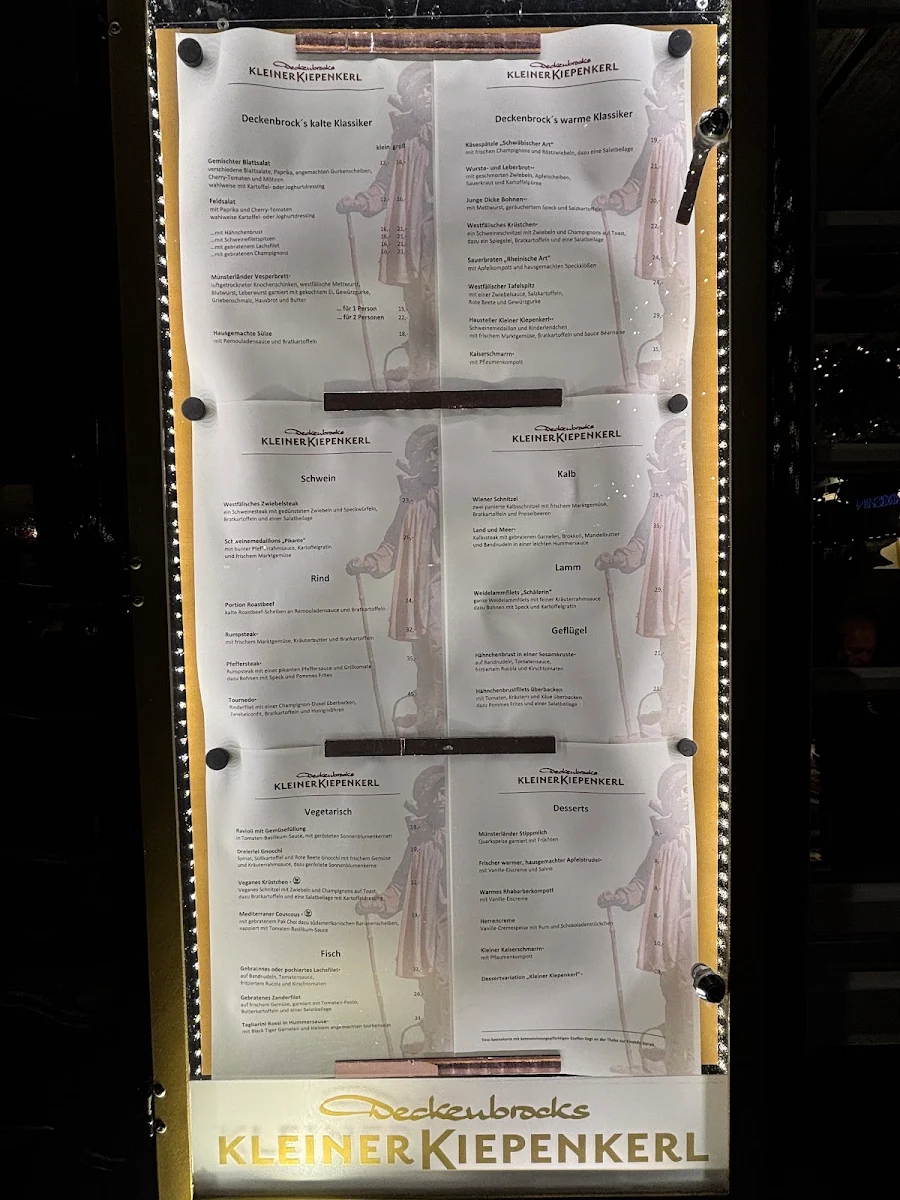 Deckenbrocks
KLEINER KIEPENKERL
Deckenbrock´s kalte Klassiker
klein groß
Gemischter Blattsalat 12,- 16,-
verschiedene Blattsalate, Paprika, angemachten Gurkenscheiben,
Cherry-Tomaten und Möhren
wahlweise mit Kartoffel- oder Joghurtdressing
Feldsalat 12,- 16,-
mit Paprika und Cherry-Tomaten
wahlweise Kartoffel- oder Joghurtdressing
...mit Hähnchenbrust 16,- 21,-
...mit Schweinefiletspitzen 16,- 21,-
...mit gebratenem Lachsfilet 16,- 21,-
...mit gebratenen Champignons 16,- 21,-
Münsterländer Vesperbrett
luftgetrockneter Knochenschinken, westfälische Mettwurst,
Blutwurst, Leberwurst garniert mit gekochtem Ei, Gewürzgurke,
Griebenschmalz, Hausbrot und Butter
... für 1 Person 15,-
... für 2 Personen 22,-
Hausgemachte Sülze 18,-
mit Remouladensauce und Bratkartoffeln
Deckenbrocks
KLEINER KIEPENKERL
Deckenbrock´s warme Klassiker
Käsespätzle „Schwäbischer Art“ 19,-
mit frischen Champignons und Röstzwiebeln, dazu eine Salatbeilage
Wurste- und Leberbrot 21,-
mit geschmorten Zwiebeln, Apfelscheiben,
Sauerkraut und Kartoffelpüree
Junge Dicke Bohnen 20,-
mit Mettwurst, geräuchertem Speck und Salzkartoffeln
Westfälisches Krüstchen 22,-
ein Schweineschnitzel mit Zwiebeln und Champignons auf Toast,
dazu ein Spiegelei, Bratkartoffeln und eine Salatbeilage
Sauerbraten „Rheinische Art“ 24,-
mit Apfelkompott und hausgemachten Speckklößen
Westfälischer Tafelspitz 24,-
mit einer Zwiebelhaube, Salzkartoffeln,
Rote Beete und Gewürzgurke
Hausteller Kleiner Kiepenkerl 29,-
Schweinemedaillon und Rinderlendchen
mit frischem Marktgemüse, Bratkartoffeln und Sauce Béarnaise
Kaiserschmarrn 15,-
mit Pflaumenkompott
Deckenbrocks
KLEINER KIEPENKERL
Schwein
Westfälisches Zwiebelsteak 23,-
ein Schweinesteak mit gedünsteten Zwiebeln und Speckwürfeln,
Bratkartoffeln und einer Salatbeilage
Schweinemedaillons „Pikante“ 26,-
mit bunter Pfefferrahmsauce, Kartoffelgratin
und frischem Marktgemüse
Rind
Portion Roastbeef
kalte Roastbeef-Scheiben an Remouladensauce und Bratkartoffeln
Rumpsteak 32,-
mit frischem Marktgemüse, Kräuterbutter und Bratkartoffeln
Pfeffersteak 35,-
Rumpsteak mit einer pikanten Pfeffersauce und Grilltomate
dazu Bohnen mit Speck und Pommes Frites
Tournedo
Rinderfilet mit einer Champignon-Duxel überbacken,
Zwiebelconfit, Bratkartoffeln und Honigmöhren
Deckenbrocks
KLEINER KIEPENKERL
Kalb
Wiener Schnitzel 28,-
zwei panierte Kalbsschnitzel mit frischem Marktgemüse,
Bratkartoffeln und Preiselbeeren
Land und Meer 35,-
Kalbsteak mit gebratenen Garnelen, Brokkoli, Mandelbutter
und Bandnudeln in einer leichten Hummersauce
Lamm
Weidelammfilets „Schäferin“ 29,-
ganze Weidelammfilets mit feiner Kräuterrahmsauce
dazu Bohnen mit Speck und Kartoffelgratin
Geflügel
Hähnchenbrust in einer Sesamkruste 21,-
auf Bandnudeln, Tomatensauce,
fritiertem Rucola und Kirschtomaten
Hähnchenbrustfilets überbacken
mit Tomaten, Kräutern und Käse überbacken
dazu Pommes Frites und einer Salatbeilage
Deckenbrocks
KLEINER KIEPENKERL
Vegetarisch
Ravioli mit Gemüsefüllung
in Tomaten-Basilikum-Sauce, mit gerösteten Sonnenblumenkernen
Dreierlei Gnocchi 19,-
Spinat, Süßkartoffel und Rote Beete Gnocchi mit frischem Gemüse
und Kräuterrahmsauce, dazu geröstete Sonnenblumenkerne
Veganes Krüstchen
Veganes Schnitzel mit Zwiebeln und Champignons auf Toast,
dazu Bratkartoffeln und eine Salatbeilage mit Kartoffeldressing
Mediterraner Couscous
mit gebratenem Pak Choi dazu südamerikanischen Bananenscheiben,
nappiert mit Tomaten Basilikum-Sauce
Fisch
Gebratenes oder pochiertes Lachsfilet
auf Bandnudeln, Tomatensauce,
fritiertem Rucola und Kirschtomaten
Gebratenes Zanderfilet 26,-
auf frischem Gemüse, garniert mit Tomaten-Pesto,
Butterkartoffeln und einer Salatbeilage
Tagliarini Rossi in Hummersauce
mit Black Tiger Garnelen und kleinem angemachten Gurkensalat
Deckenbrocks
KLEINER KIEPENKERL
Desserts
Münsterländer Stippmilch 8,-
Quarkspeise garniert mit Früchten
Frischer warmer, hausgemachter Apfelstrudel
mit Vanille-Eiscreme und Sahne
Warmes Rhabarberkompott
mit Vanille-Eiscreme
Herrencreme 8,-
Vanille-Cremespeise mit Rum und Schokoladenstückchen
Kleiner Kaiserschmarrn 10,-
mit Pflaumenkompott
Dessertvariation „Kleiner Kiepenkerl“
Eine Speisekarte mit kennzeichnungspflichtigen Stoffen liegt an der Theke zur Einsicht bereit.
Deckenbrocks
KLEINER KIEPENKERL